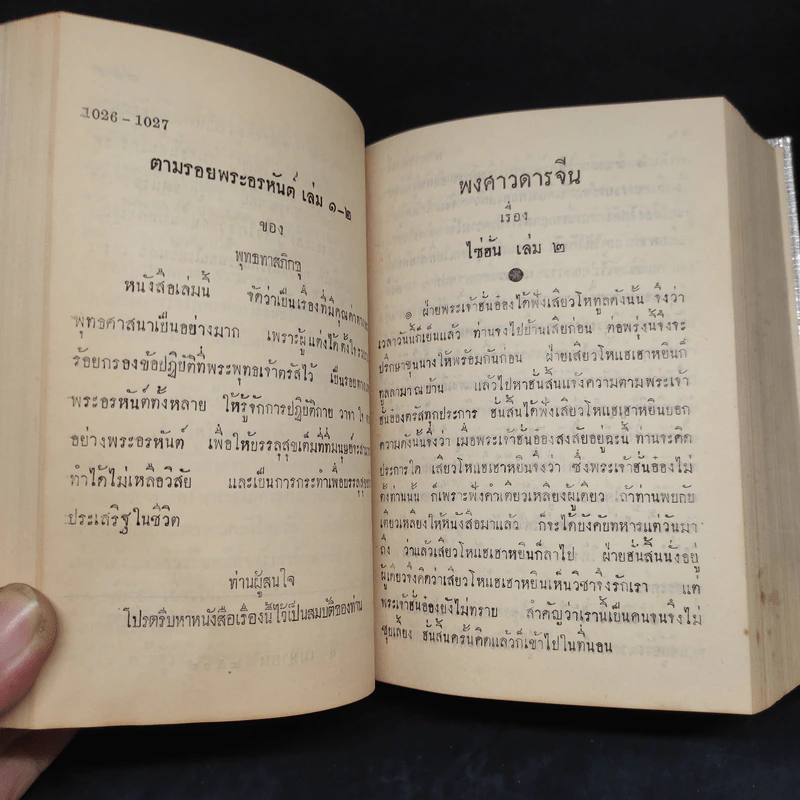 1026 – 1027
ตามรอยพระอรหันต์ เล่ม ๑–๒
ของ
พุทธทาสภิกขุ
หนังสือเล่มนี้ จัดว่าเป็นเรื่องที่มีคุณค่าทาง
พุทธศาสนาเป็นอย่างมาก เพราะผู้แต่งได้ตั้งใจ
ร้อยกรองข้อปฏิบัติที่พระพุทธเจ้าตรัสไว้ เป็นรอยทาง
พระอรหันต์ทั้งหลาย ให้รู้จักการปฏิบัติกาย วาจา ใจ
อย่างพระอรหันต์ เพื่อให้บรรลุสุขเต็มที่ที่มนุษย์จะ
ทำได้ไม่เหลือวิสัย และเป็นการกระทำเพื่อบรรลุ
ประเสริฐในชีวิต
ท่านผู้สนใจ
โปรดรีบหาหนังสือเรื่องนี้ไว้เป็นสมบัติของท่าน
พงศาวดารจีน
เรื่อง
ไซ่ฮั่น เล่ม ๒
๏ ฝ่ายพระเจ้าฮั่นอ๋องได้ฟังเสียวโหทูลดังนั้น จึงว่า
เวลาวันนี้ก็เย็นแล้ว ท่านจงไปบ้านเสียก่อน ต่อพรุ่งนี้จึงจะ
ปรึกษาขุนนางให้พร้อมกันก่อน ฝ่ายเสียวโหแฮเฮาหยินก็
ทูลลามา ณ บ้าน แล้วไปหาฮั่นสิ้นแจ้งความตามพระเจ้า
ฮั่นอ๋องตรัสทุกประการ ฮั่นสิ้นได้ฟังเสียวโหแฮเฮาหยินบอก
ความดังนั้นจึงว่า เมื่อพระเจ้าฮั่นอ๋องสงสัยอยู่ฉะนี้ ท่านจะคิด
ประการใด เสียวโหแฮเฮาหยินจึงว่า ซึ่งพระเจ้าฮั่นอ๋องไม่
ตั้งท่านนั้น ก็เพราะฟังคำเตียวเหลียงผู้เดียว ถ้าท่านพบกับ
เตียวเหลียงให้หนังสือมาแล้ว ก็จะได้บังคับทหารแต่วันมา
ถึง ว่าแล้วเสียวโหแฮเฮาหยินก็ลาไป ฝ่ายฮั่นสิ้นนั่งอยู่
ผู้เดียวจึงคิดว่าเสียวโหแฮเฮาหยินเห็นวิชาจึงรักเรา แต่
พระเจ้าฮั่นอ๋องยังไม่ทราย สำคัญว่าเรานี้เป็นคนจนจึงไม่
ชุบเลี้ยง ฮั่นสิ้นครั้นคิดแล้วก็เข้าไปในที่นอน